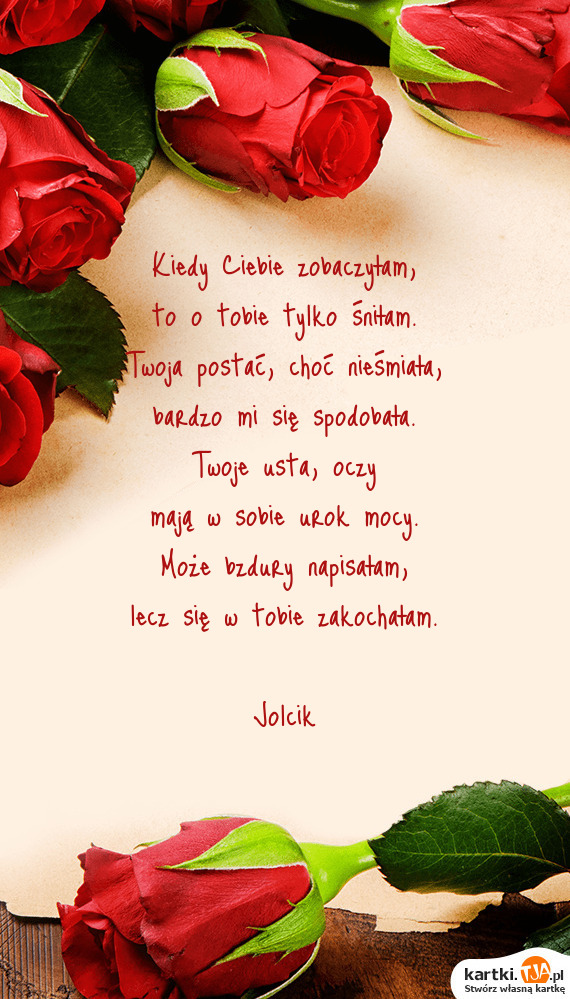 Kiedy Ciebie zobaczyłam,
to o tobie tylko śniłam.
Twoja postać, choć nieśmiała,
bardzo mi się spodobała.
Twoje usta, oczy
mają w sobie urok mocy.
Może bzdury napisałam,
lecz się w tobie zakochałam.
Jolcik
kartki.TJA.pl
Stwórz własną kartkę